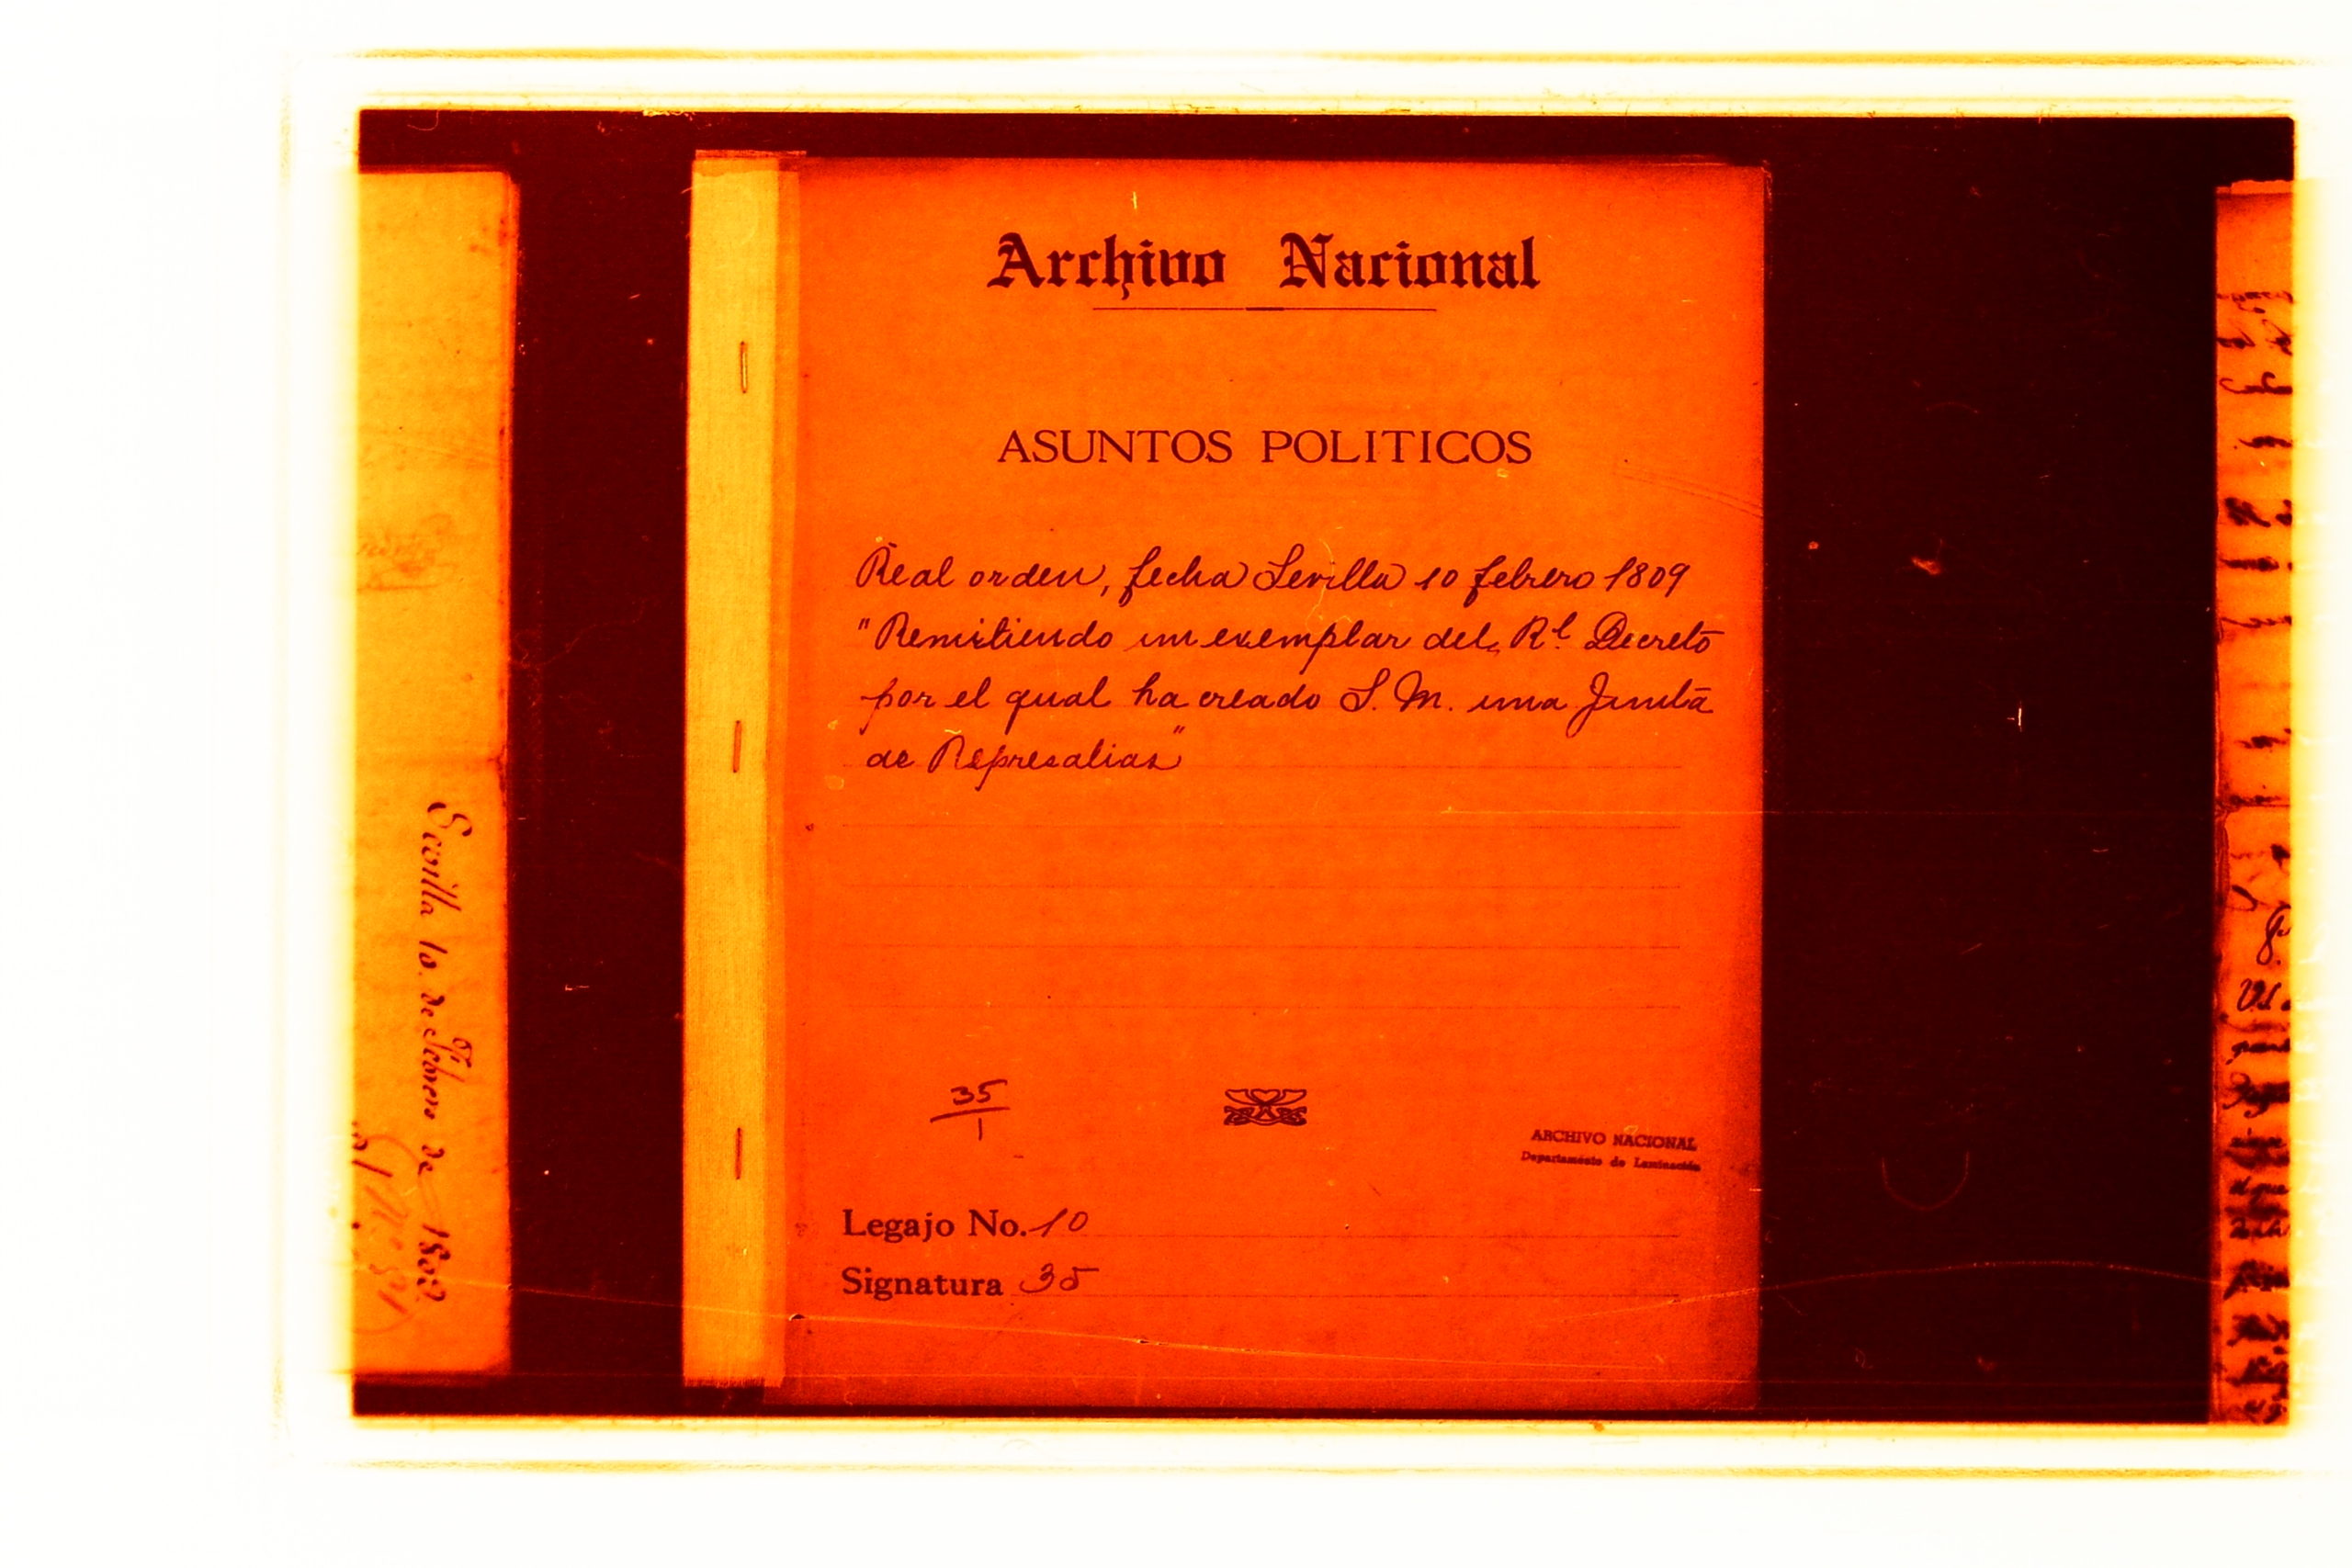 Archivo Nacional
ASUNTOS POLITICOS
Real orden, fecha Sevilla 10 febrero 1809
"Remitiendo un exemplar del Rl. Decreto
por el qual ha creado S. M. una Junta
de Represalias"
35
1
ARCHIVO NACIONAL
Departamento de Laminación
Legajo No. 10
Signatura 35
Sevilla 10. de Febrero de